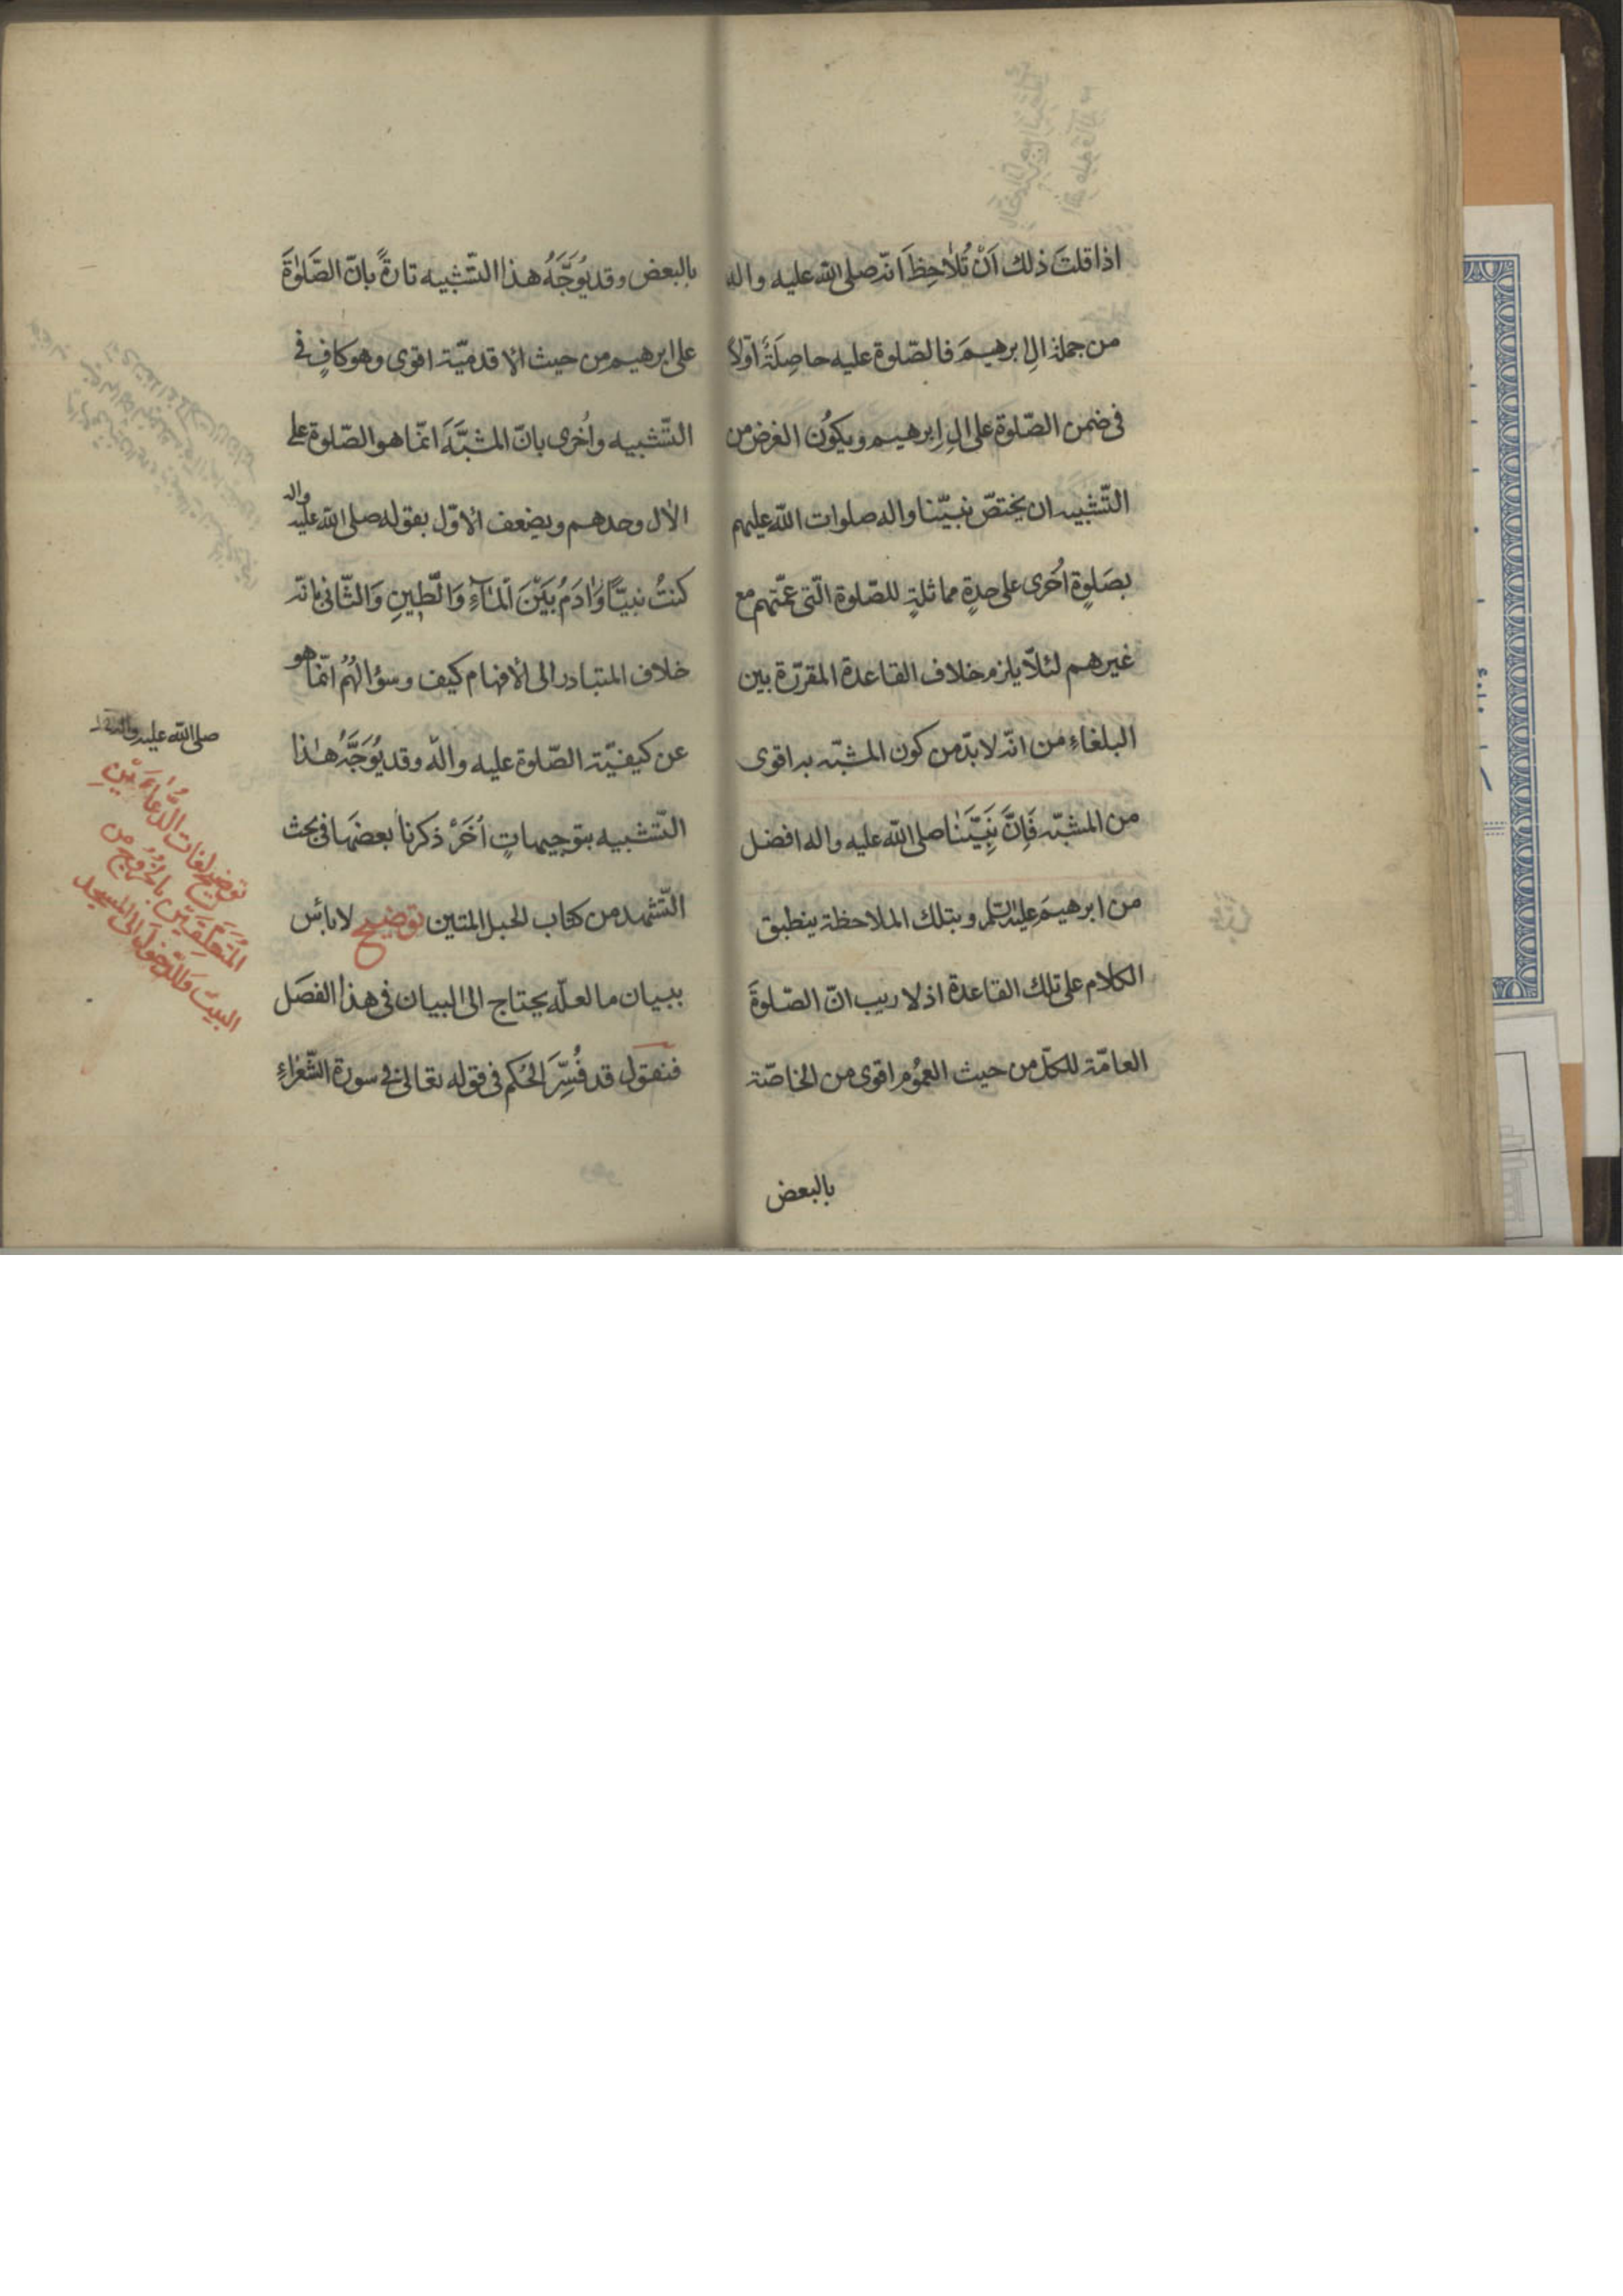 اذا قلتَ ذلك اَنْ تُلاحِظَ انّه صلى الله عليه واله
من جملة الِ ابرهيمَ فالصّلوة عليه حاصِلَةٌ اوّلاً
فى ضمن الصّلوة على الِ ابرهيم ويكوُن الغرض من
التّشبيه ان يختصّ نبيّنا واله صلوات الله عليهم
بصَلوةٍ اُخرى على حِدةٍ مماثلةٍ للصّلوة الّتى عمّتهم مع
غيرهم لئلّا يلزم خلاف القاعدة المقرّرة بين
البلغاءِ من انّه لا بدّ من كون المشبّه به اقوى
من المشبّه فَاِنَّ نَبِيَّنٰا صلى الله عليه واله افضل
من ابرهيمَ عليه السّلم وبتلك الملاحظة ينطبق
الكلام على تلك القاعدة اذ لا ريب انّ الصّلوةَ
العامّة للكلّ من حيث العمُوم اقوى من الخاصّة
بالبعض
بالبعض وقد يُوَجَّهُ هذا التّشبيه تارةً بانّ الصَّلوٰةَ
على ابرهيم من حيث الاقدميّة اقوى وهو كافٍ فى
التّشبيه واُخرى بانّ المشبَّهَ انّما هو الصّلوة على
الاٰل وحدهم ويضعف الاوّل بقوله صلى الله عليه واله
كنتُ نبيّاً وَاٰدَمُ بَيْنَ الْمٰاۤءِ وَالطّينِ وَالثّانى بانّه
خلاف المتبادر الى الافهام كيف وسؤالهُمْ انّما هو
عن كيفيّة الصّلوة عليه واله وقد يُوَجَّهُ هٰذا
التّشبيه بتوجيهاتٍ اُخَرْ ذكرنا بعضها فى بحث
التّشهد من كتاب الحبل المتين توضيح لا بأس
ببيان ما لعلّه يحتاج الى البيان فى هذا الفصَل
فنقول قد فُسِّرَ الحُكم فى قوله تعالى فى سورة الشّعَراءِ
صلى الله عليه واله
توضيح لغات الدُّعاءَيْنِ
المُتَعَلِّقَيْنِ بالخُرُوجُ من
البيت وَالدّخول الى المسجد